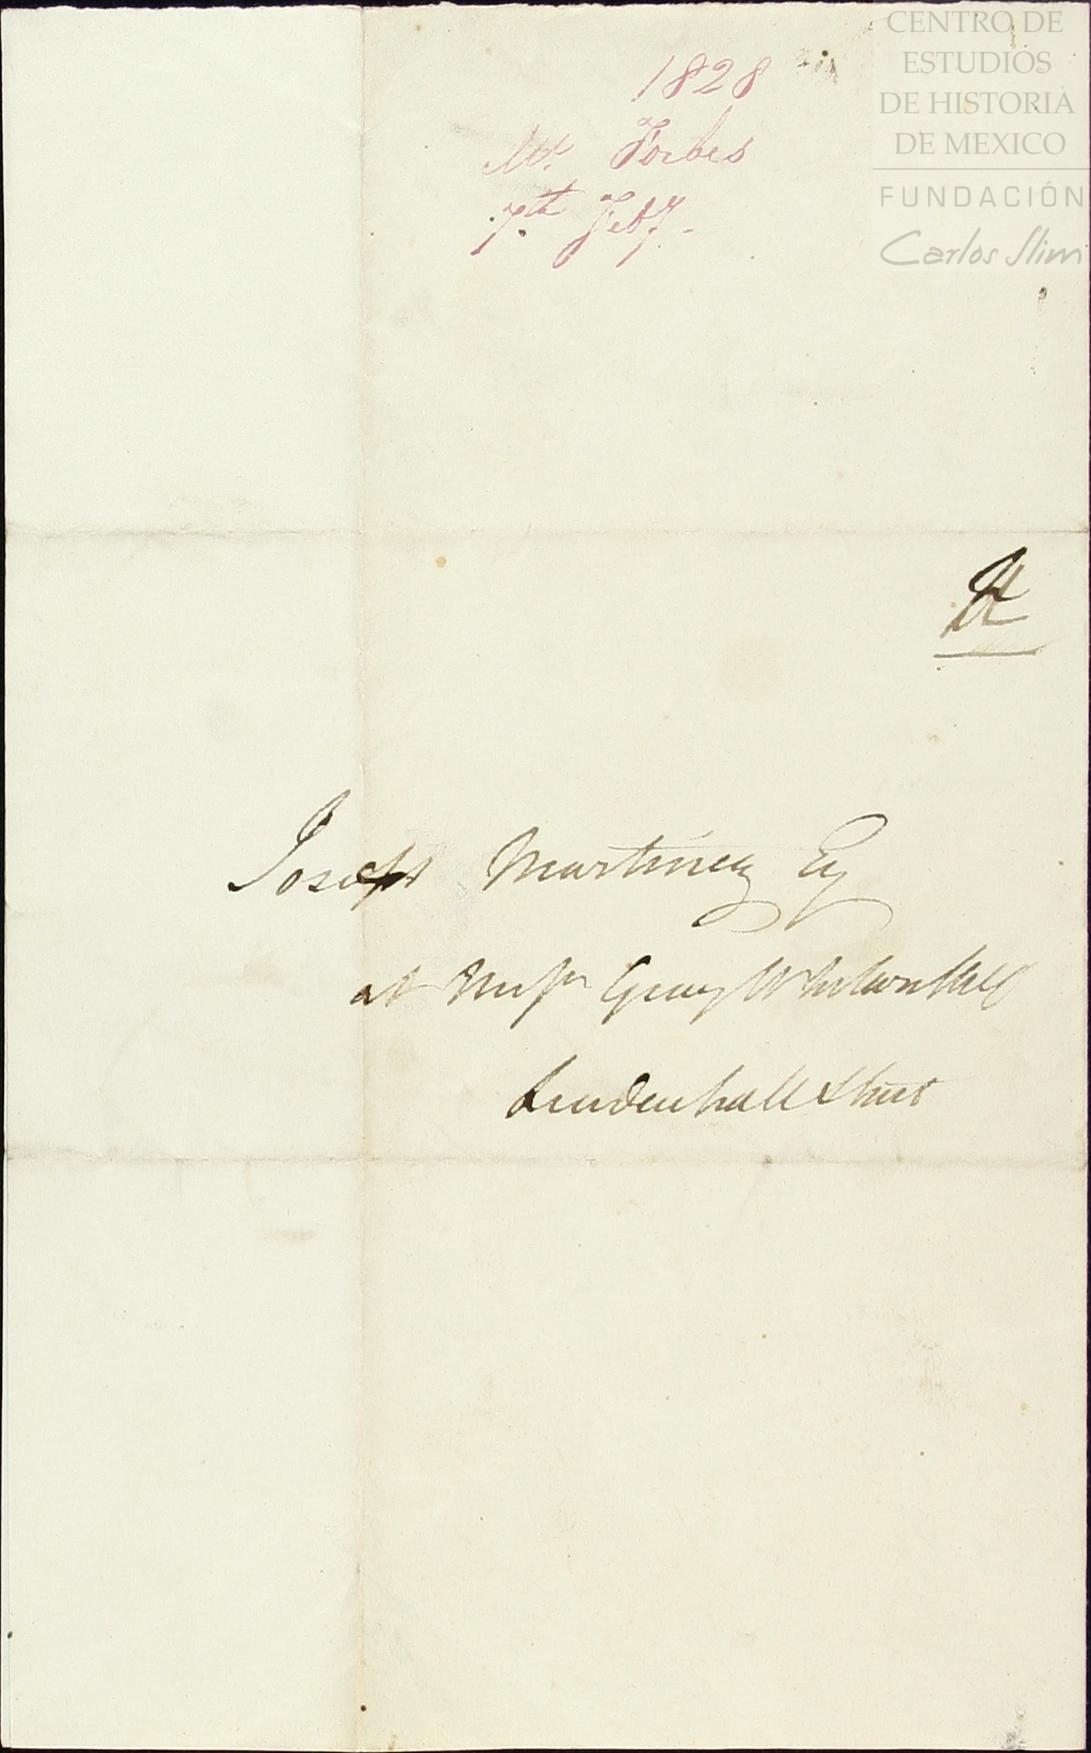 CENTRO DE
ESTUDIOS
DE HISTORIA
DE MEXICO
FUNDACIÓN
Carlos Slim
1828
Mr. Forbes
7th Feby.
Joseph Martinez Esq
at Messrs Gray
Leadenhall Street